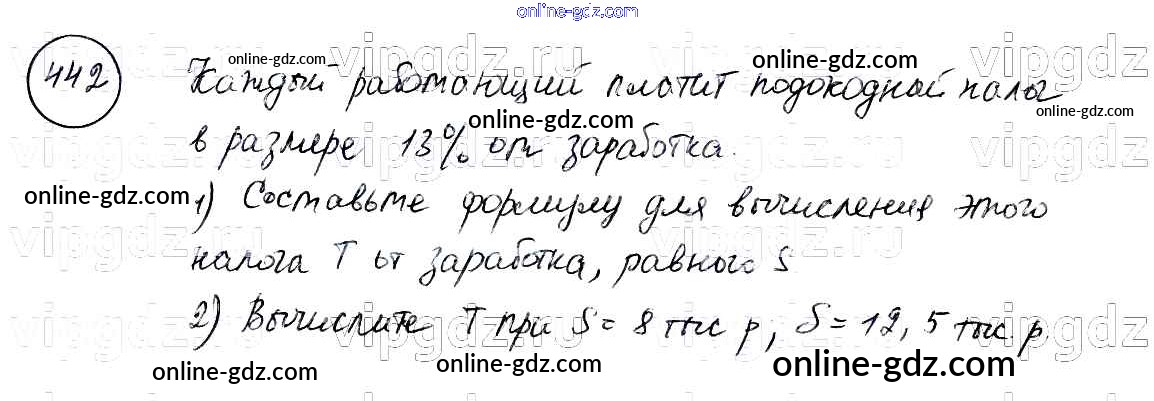 online-gdz.com
442 Каждый работающий платит подоходный налог
в размере 13% от заработка.
1) Составьте формулу для вычисления этого
налога T от заработка, равного S
2) Вычислите T при S = 8 тыс р, S = 12,5 тыс. р.
vipgdz.ru
online-gdz.com
online-gdz.com
online-gdz.com
online-gdz.com
online-gdz.com
online-gdz.com
online-gdz.com
online-gdz.com